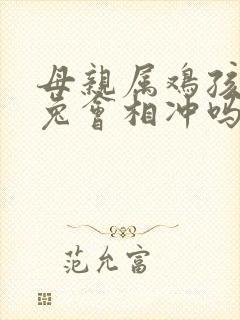 母親属鸡孩
兔會相冲吗
范允富